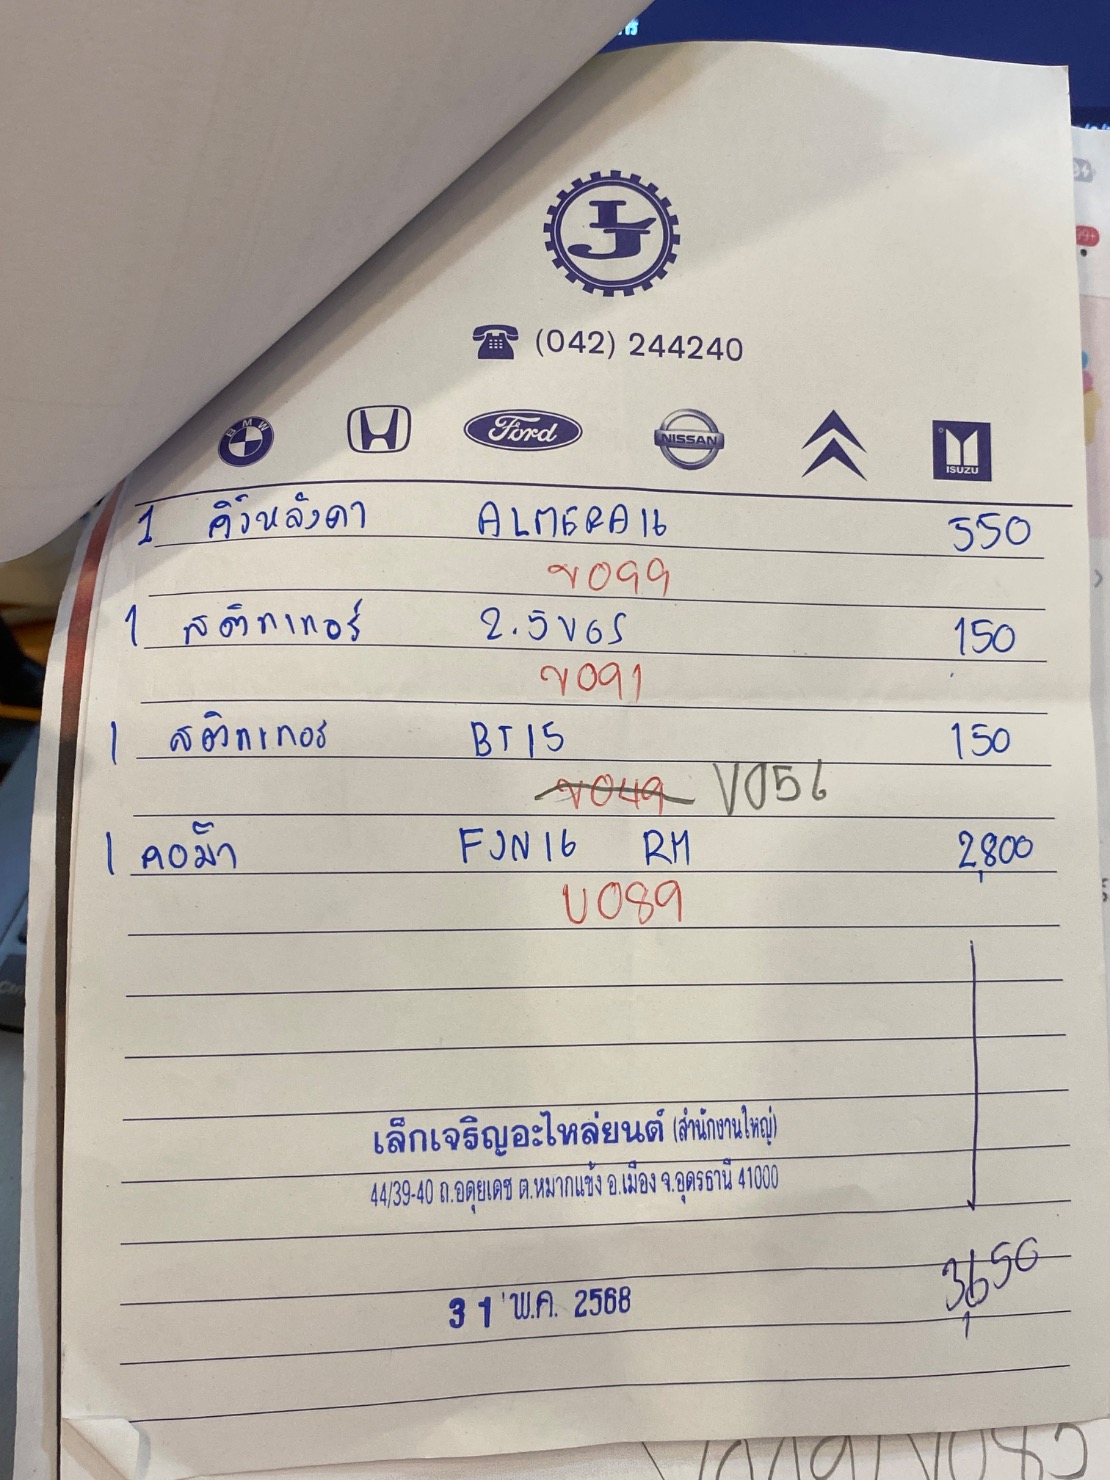 LJ
(042) 244240
BMW
Ford
NISSAN
ISUZU
1 คิ้วหลังคา ALMERA16 550
บ099
1 สติกเกอร์ 2.5VGS 150
บ091
1 สติกเกอร BT15 150
บ049 V056
1 คอม้า FJN16 RM 2,800
บ089
เล็กเจริญอะไหล่ยนต์ (สำนักงานใหญ่)
44/39-40 ถ.อดุยเดช ต.หมากแข้ง อ.เมือง จ.อุดรธานี 41000
3,650
31 พ.ค. 2568